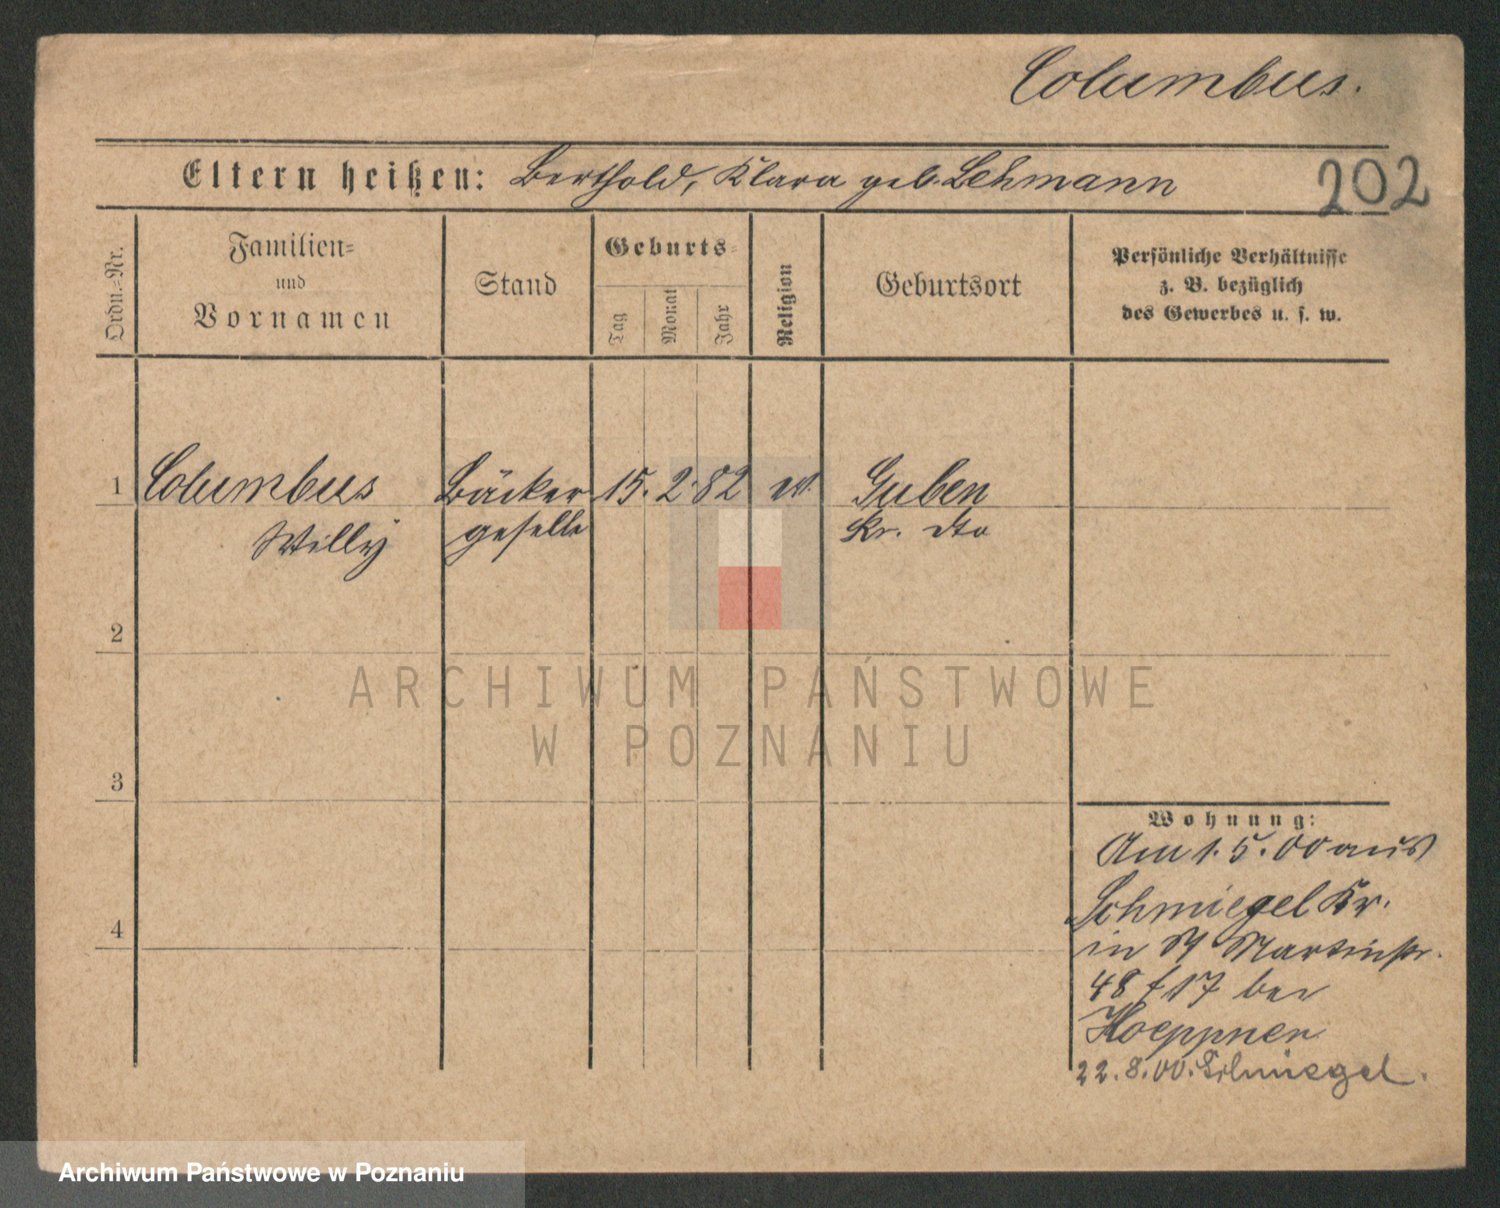 Columbus.
Eltern heißen: Berthold, Klara geb. Lehmann
202
Ordn.-Nr.
Familien-
und
Vornamen
Stand
Geburts-
Tag
Monat
Jahr
Religion
Geburtsort
Persönliche Verhältnisse
z. B. bezüglich
des Gewerbes u. s. w.
1 Columbus Bäcker 15. 2. 82 ev. Guben
Willy geselle Kr. dto
2
ARCHIWUM PAŃSTWOWE
W POZNANIU
3
Wohnung:
Am 1. 5. 00 aus
Schmiegel Kr.
4
in Martinstr.
48 17 bei
Hoeppner
22. 8. 00. Schmiegel.
Archiwum Państwowe w Poznaniu